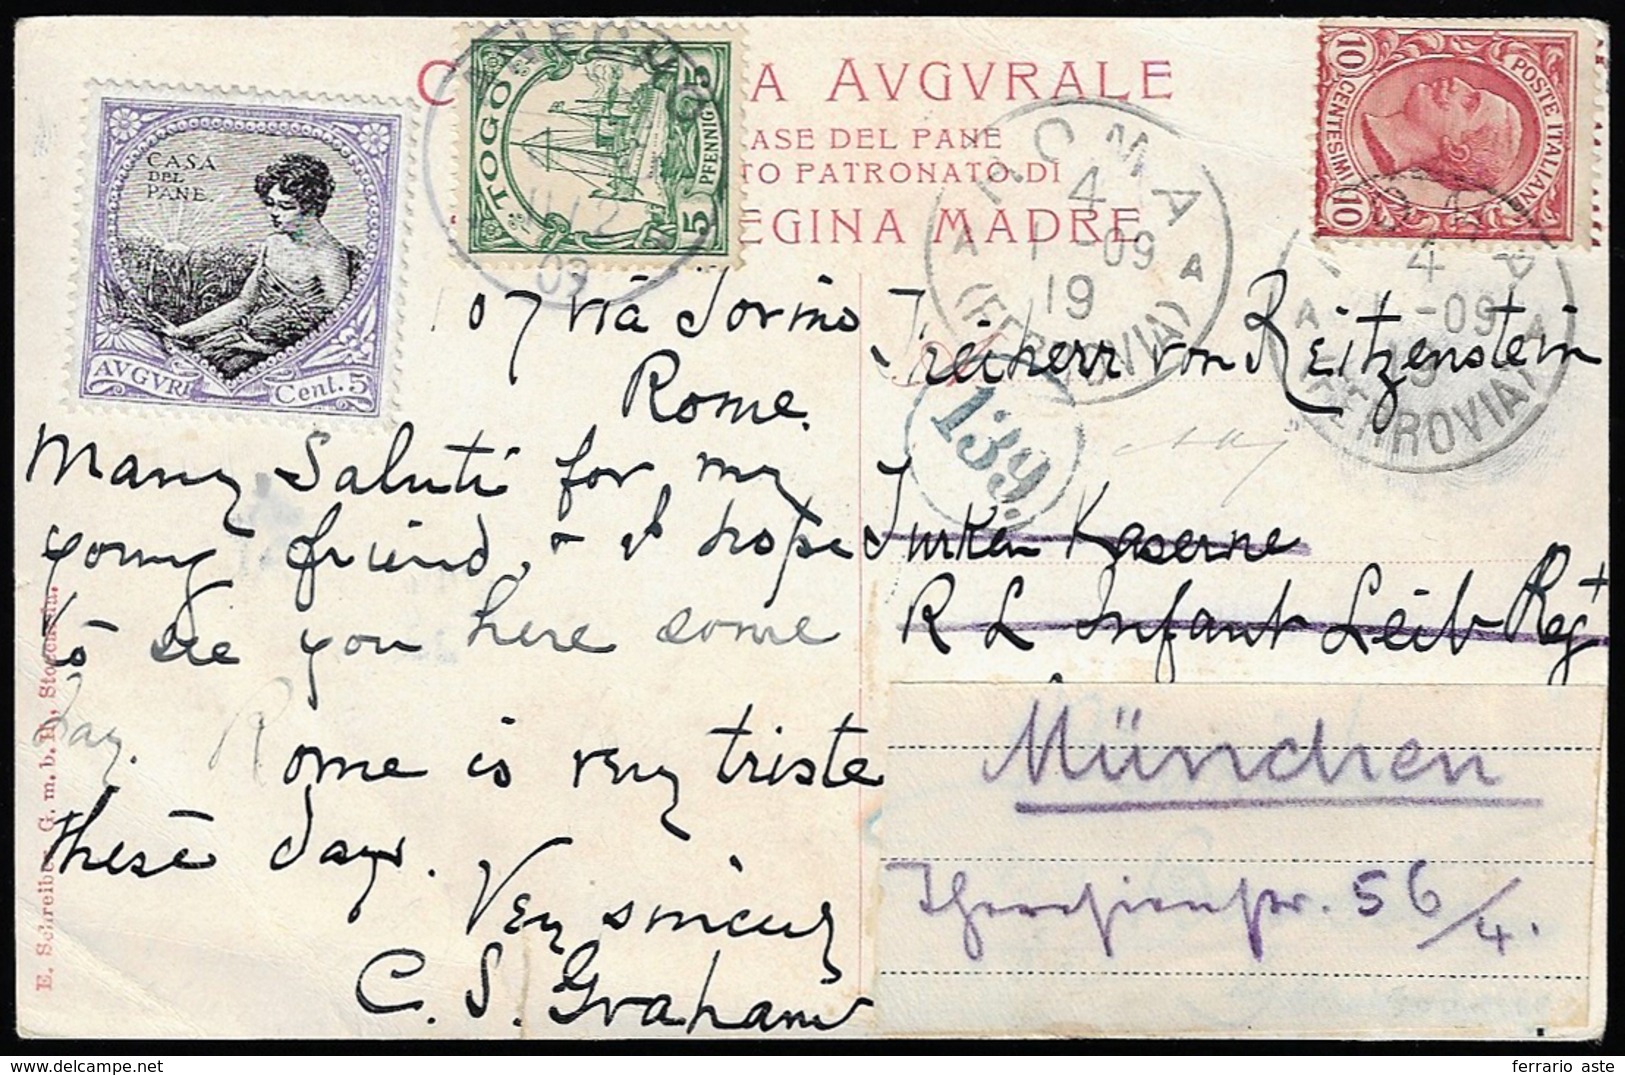 AVGVRALE
CASE DEL PANE
PATRONATO DI
REGINA MADRE
CASA
DEL
PANE.
AVGVRI Cent. 5
TOGO
5 5
PFENNIG
09
ROMA
4
09
19
(FERROVIA)
A A
POSTE ITALIANE
10 CENTESIMI 10
4
-09
(FERROVIA)
A A
139.
107 via Torino
Rome.
Many Saluti for my
young friend, & I hope
to see you here some
day. Rome is very triste
these days.
Very sincerely
C. S. Graham
Freiherr von Reitzenstein
Türken Kaserne
R L Infant Leib Regt
München
Theresienstr. 56/4.
E. Schreiber G. m. b. H., Stogcarda.
ferrario aste